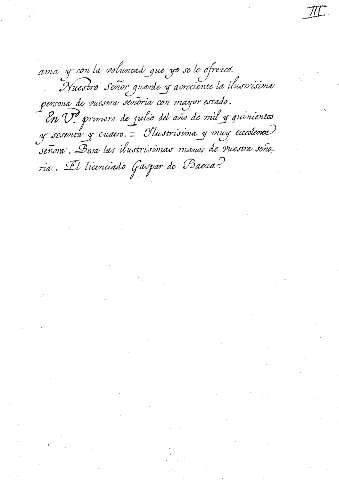 III
ama y con la voluntad que yo se lo ofrezco.
Nuestro Señor guarde y acreciente la ilustrisima
persona de vuestra señoria con mayor estado.
En Vª. primero de julio del año de mil y quinientos
y sesenta y cuatro. = Ilustrisima y muy excelente
señora. Besa las ilustrisimas manos de vuestra seño-
ria. El licenciado Gaspar de Baeza.